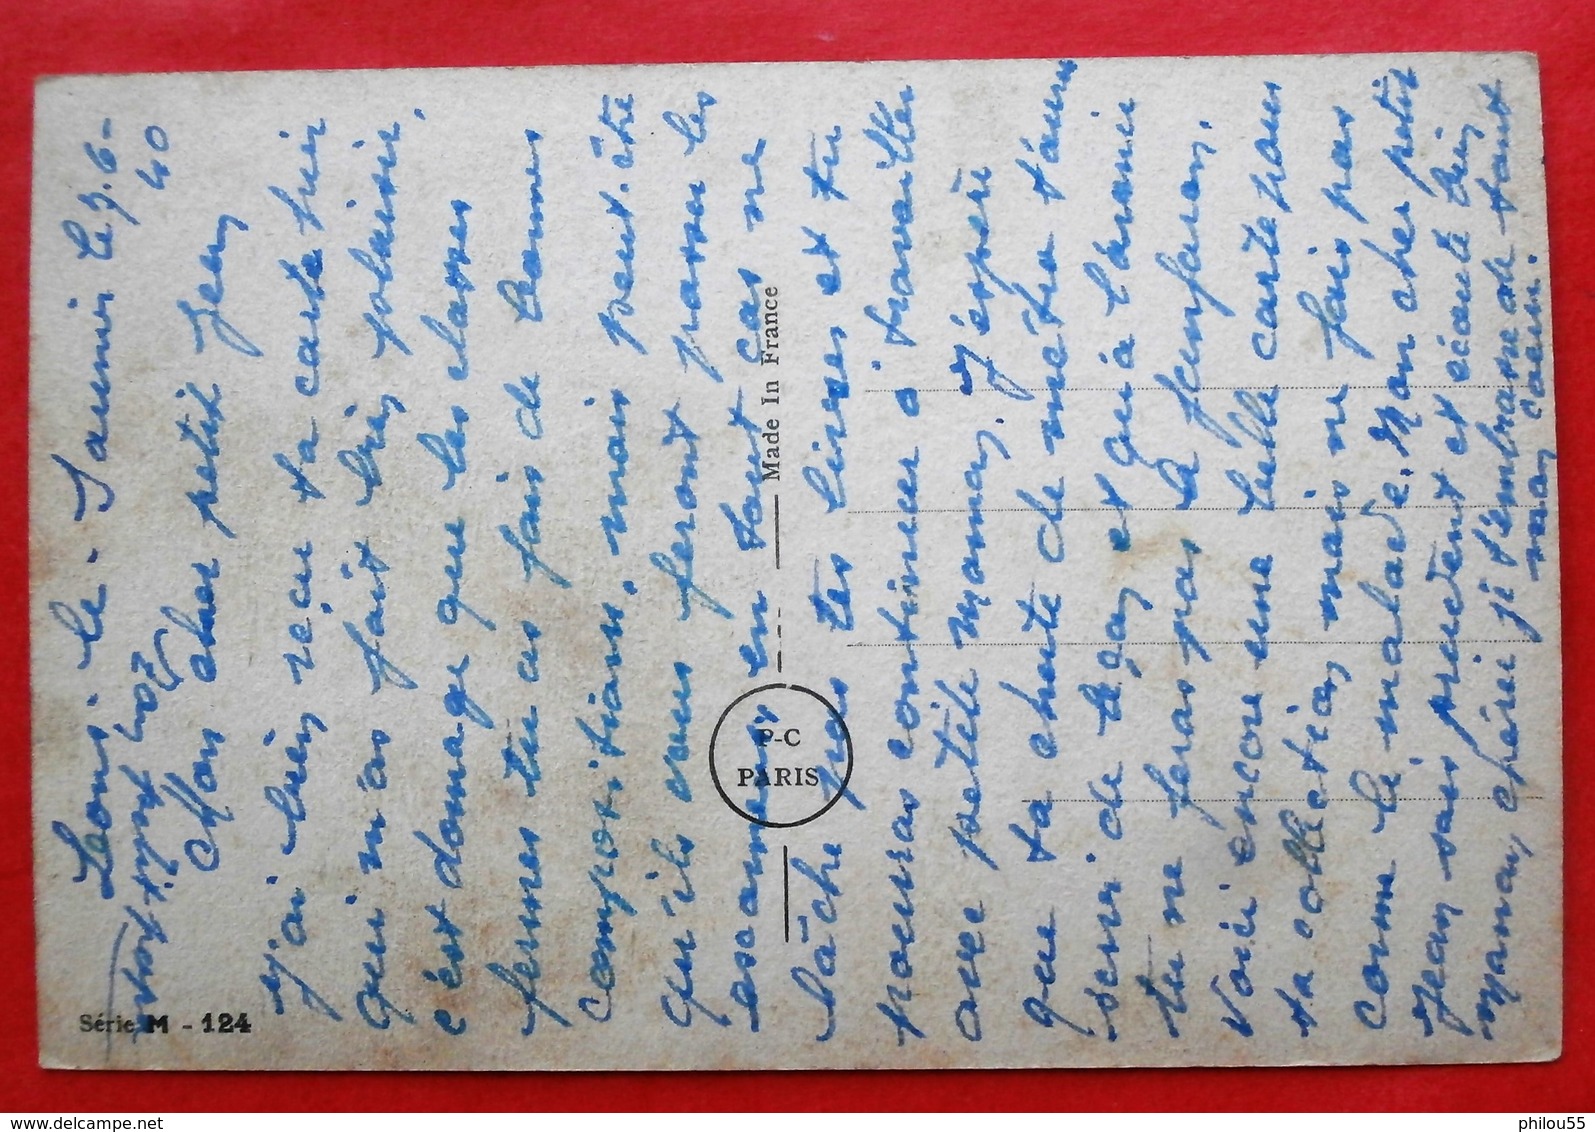 Lons-le-Saunier le 9.6-
40
Mon cher petit Jean
J'ai bien reçu ta carte hier
qui m'as fait bien plaisir,
c'est domage que les classes
fermes tu as fais de bonnes
compositions, mais peut-être
qu'ils vous feront passer les
examens en tout cas ne
lâche pas tes livres et tu
pouras continuer a travailler
avec petite maman. J'espère
que ta chute de métro t'aura
servi de leçon et qui a l'avenir
tu ne feras pas le fanfaron.
Voici encore une belle carte pour
ta collection, mais ne fais pas
comme le malade. Mon cher petit
Jean sois prudent et écoute bien
maman chérie je t'embrasse de tout
mon coeur.
Série M - 124
P-C
PARIS
Made In France
philou55